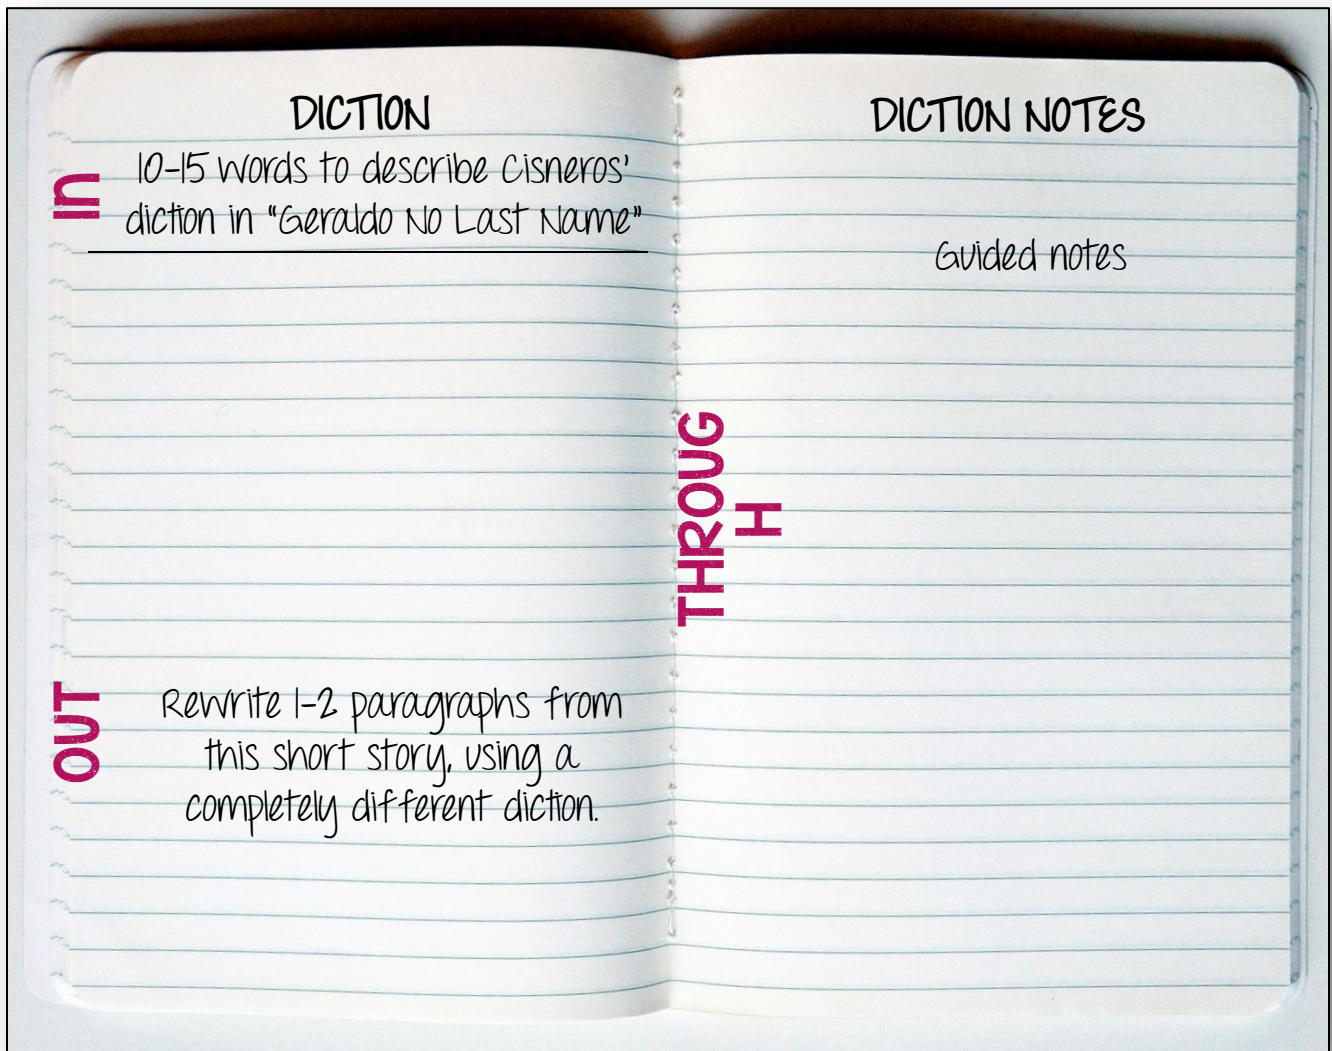 DICTION
In
10-15 words to describe Cisneros'
diction in "Geraldo No Last Name"
OUT
Rewrite 1-2 paragraphs from
this short story, using a
completely different diction.
THROUG
H
DICTION NOTES
Guided notes